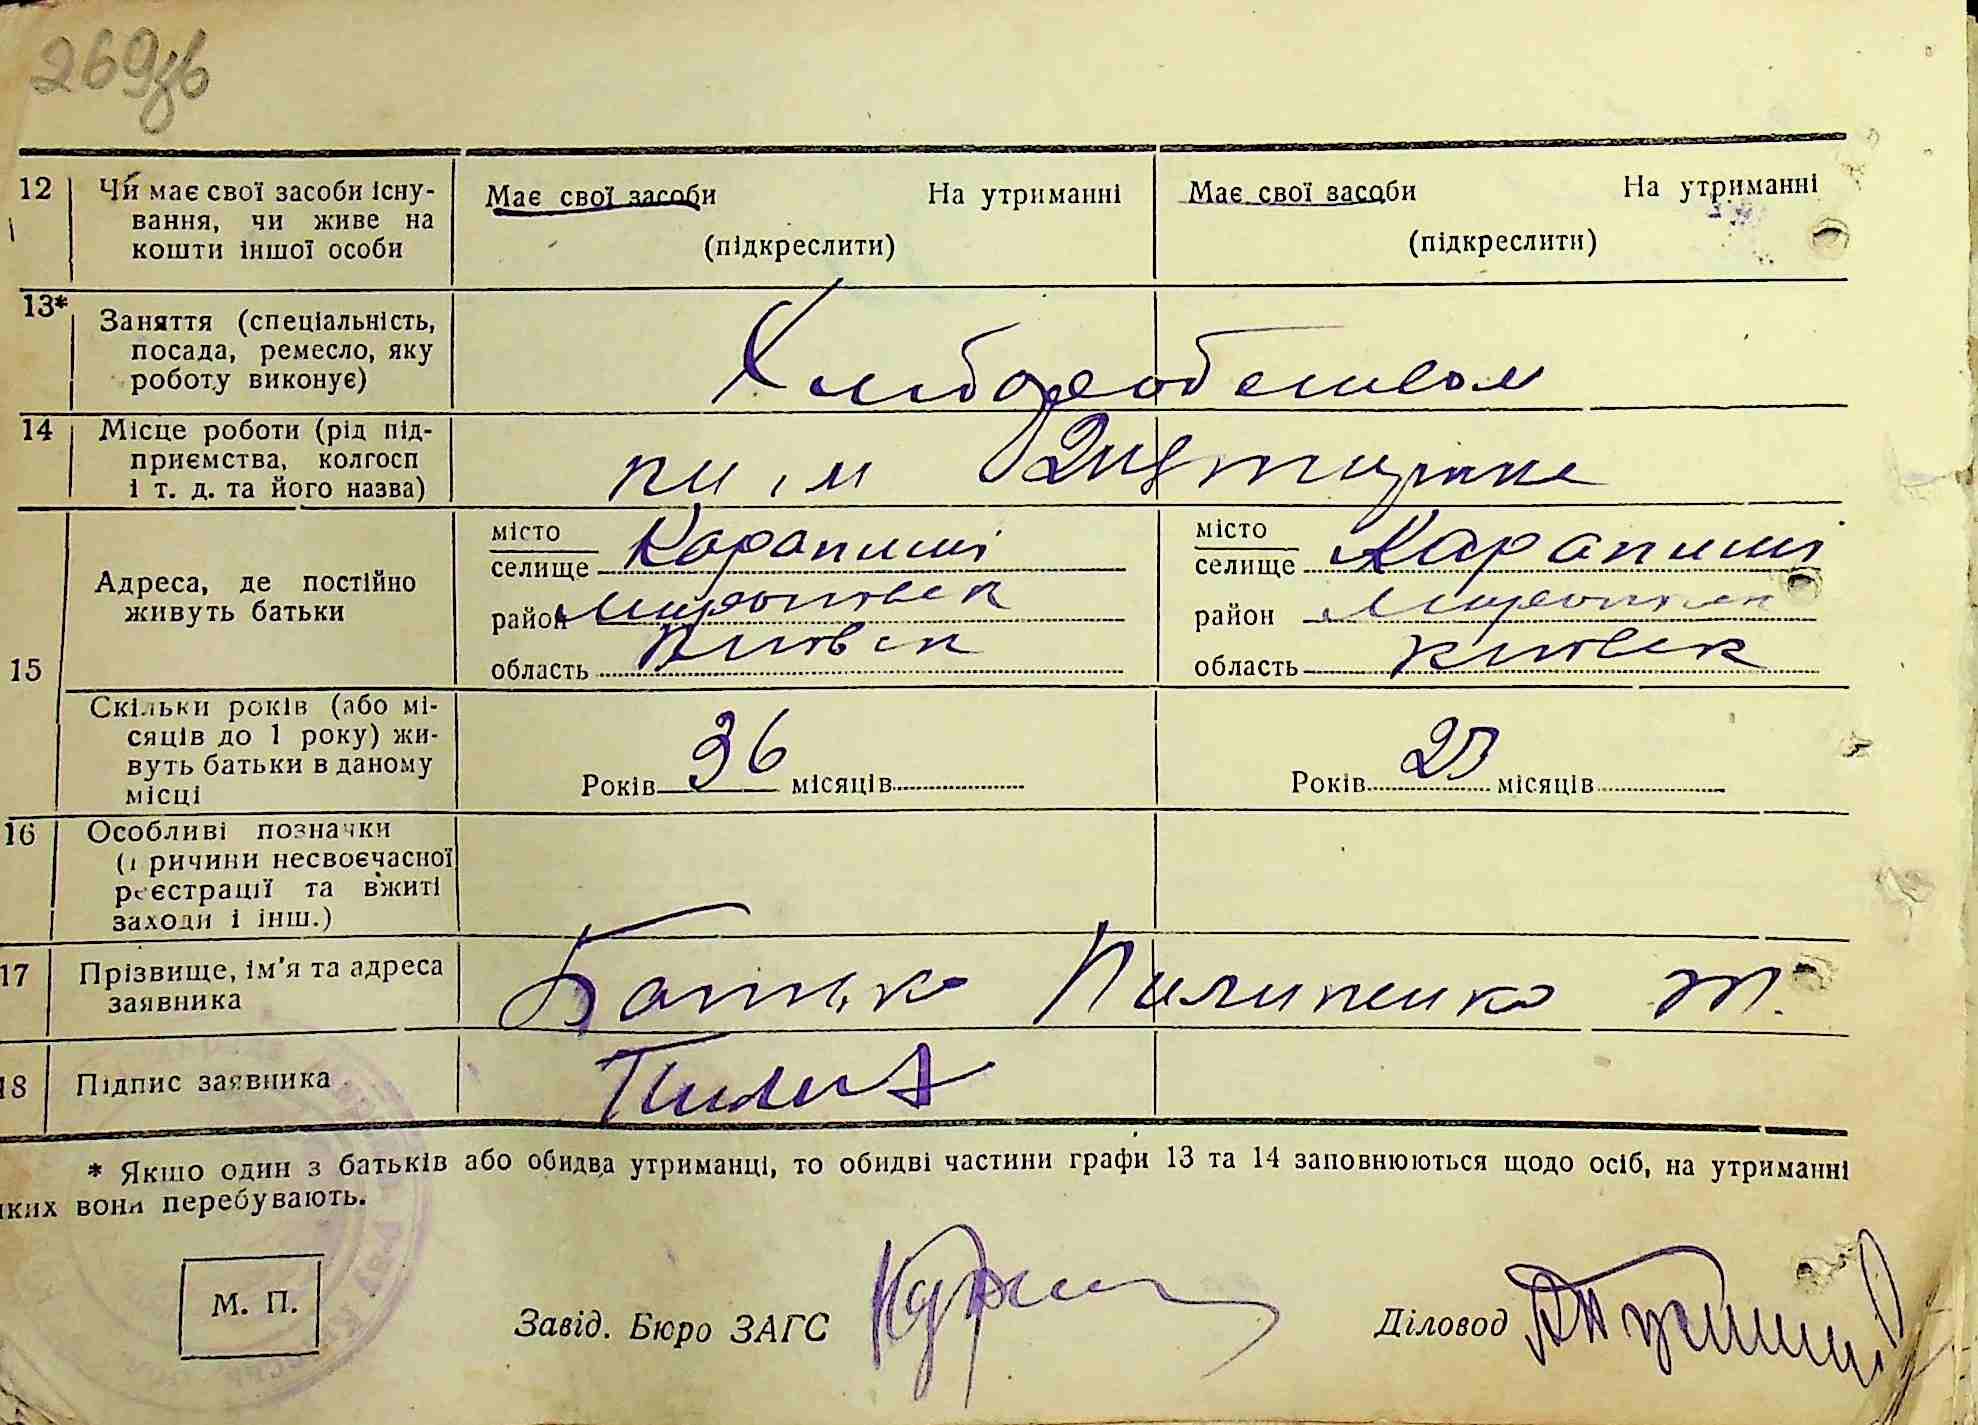 269зв
12 Чи має свої засоби існу-
вання, чи живе на
кошти іншої особи
Має свої засоби На утриманні
(підкреслити)
Має свої засоби На утриманні
(підкреслити)
13* Заняття (спеціальність,
посада, ремесло, яку
роботу виконує)
Хлиборобством
14 Місце роботи (рід під-
приємства, колгосп
і т. д. та його назва)
15 Адреса, де постійно
живуть батьки
місто
селище Карапиші
район Миронівск
область Київск
місто
селище Карапиші
район Миронівск
область Київск
Скільки років (або мі-
сяців до 1 року) жи-
вуть батьки в даному
місці
Років 36 місяців
Років 23 місяців
16 Особливі позначки
(причини несвоєчасної
реєстрації та вжиті
заходи і інш.)
17 Прізвище, ім'я та адреса
заявника
Батько Пилипенко Т.
18 Підпис заявника
Пилип
* Якшо один з батьків або обидва утриманці, то обидві частини графи 13 та 14 заповнюються щодо осіб, на утриманні
яких вони перебувають.
М. П.
Завід. Бюро ЗАГС
Діловод